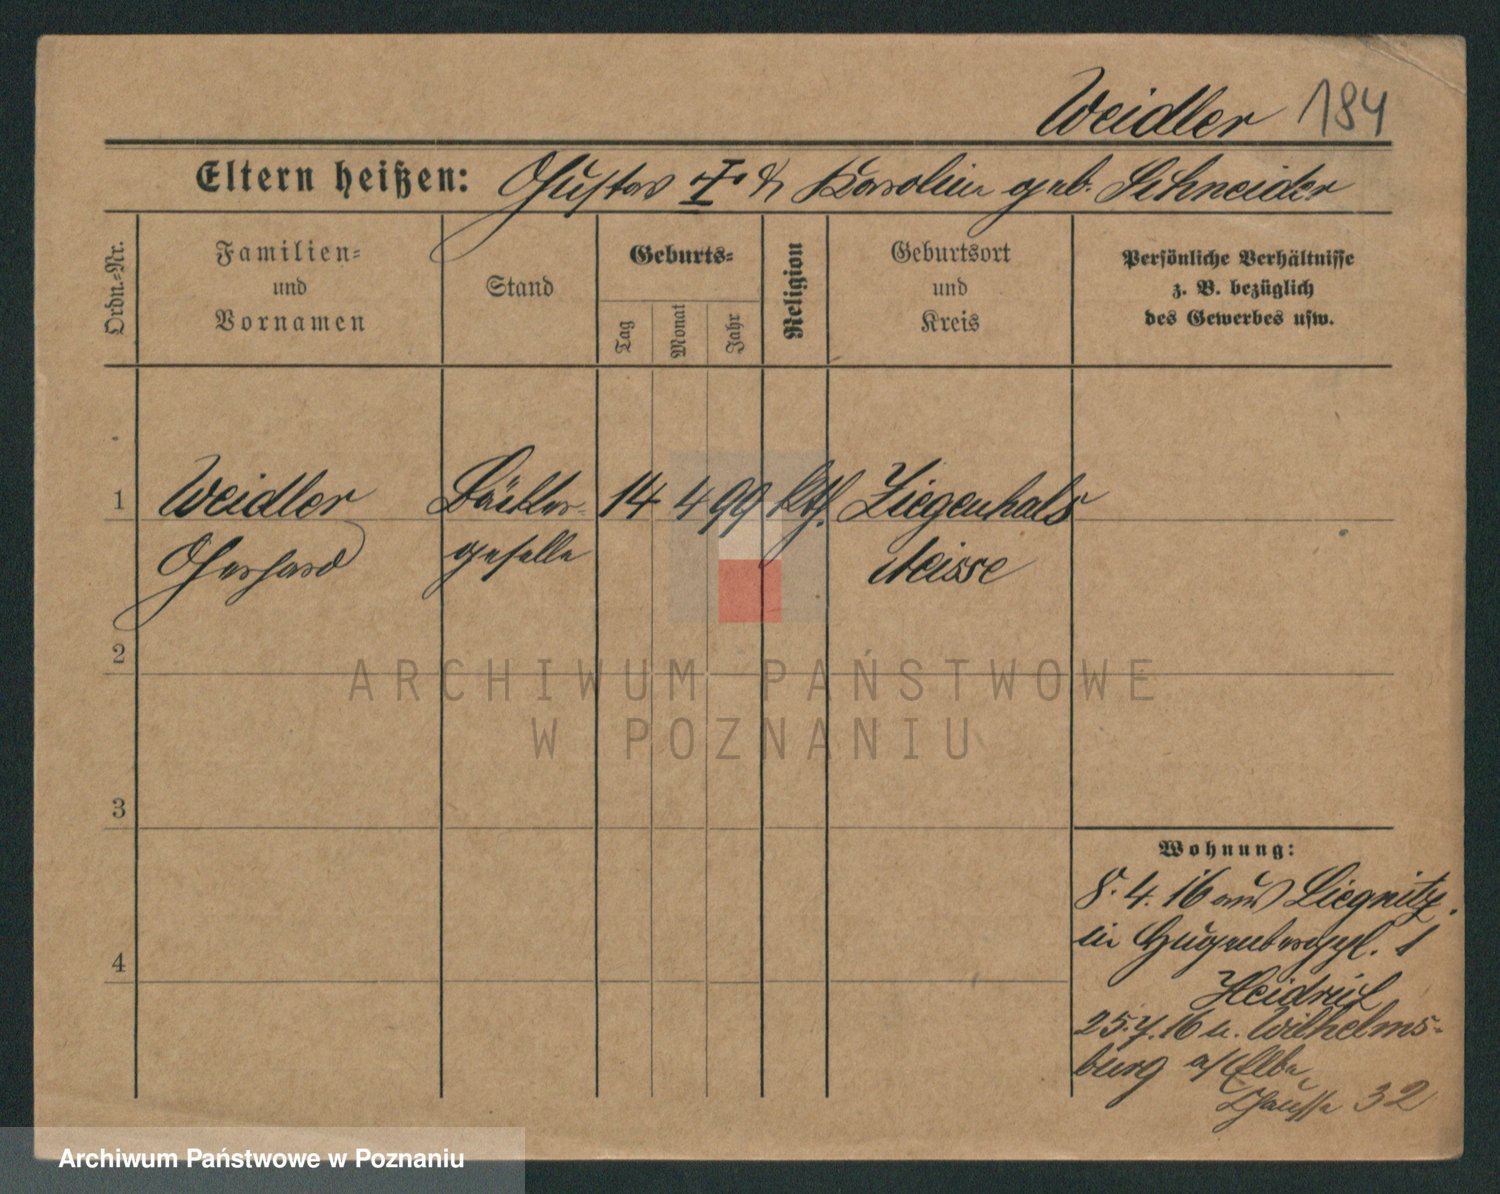 Weidler 184
Eltern heißen: Gustav & Karoline geb. Schneider
Ordn.-Nr.
Familien-
und
Vornamen
Stand
Geburts-
Tag
Monat
Jahr
Religion
Geburtsort
und
Kreis
Persönliche Verhältnisse
z. B. bezüglich
des Gewerbes usw.
1 Weidler Bäcker- 14 4 99 kth. Ziegenhals
Gerhard geselle Neisse
2
3
4
ARCHIWUM PAŃSTWOWE
W POZNANIU
Wohnung:
8. 4. 16 aus Liegnitz.
in 1
25. 7. 16 n. Wilhelms-
burg a/Elbe
Chaussee 32
Archiwum Państwowe w Poznaniu